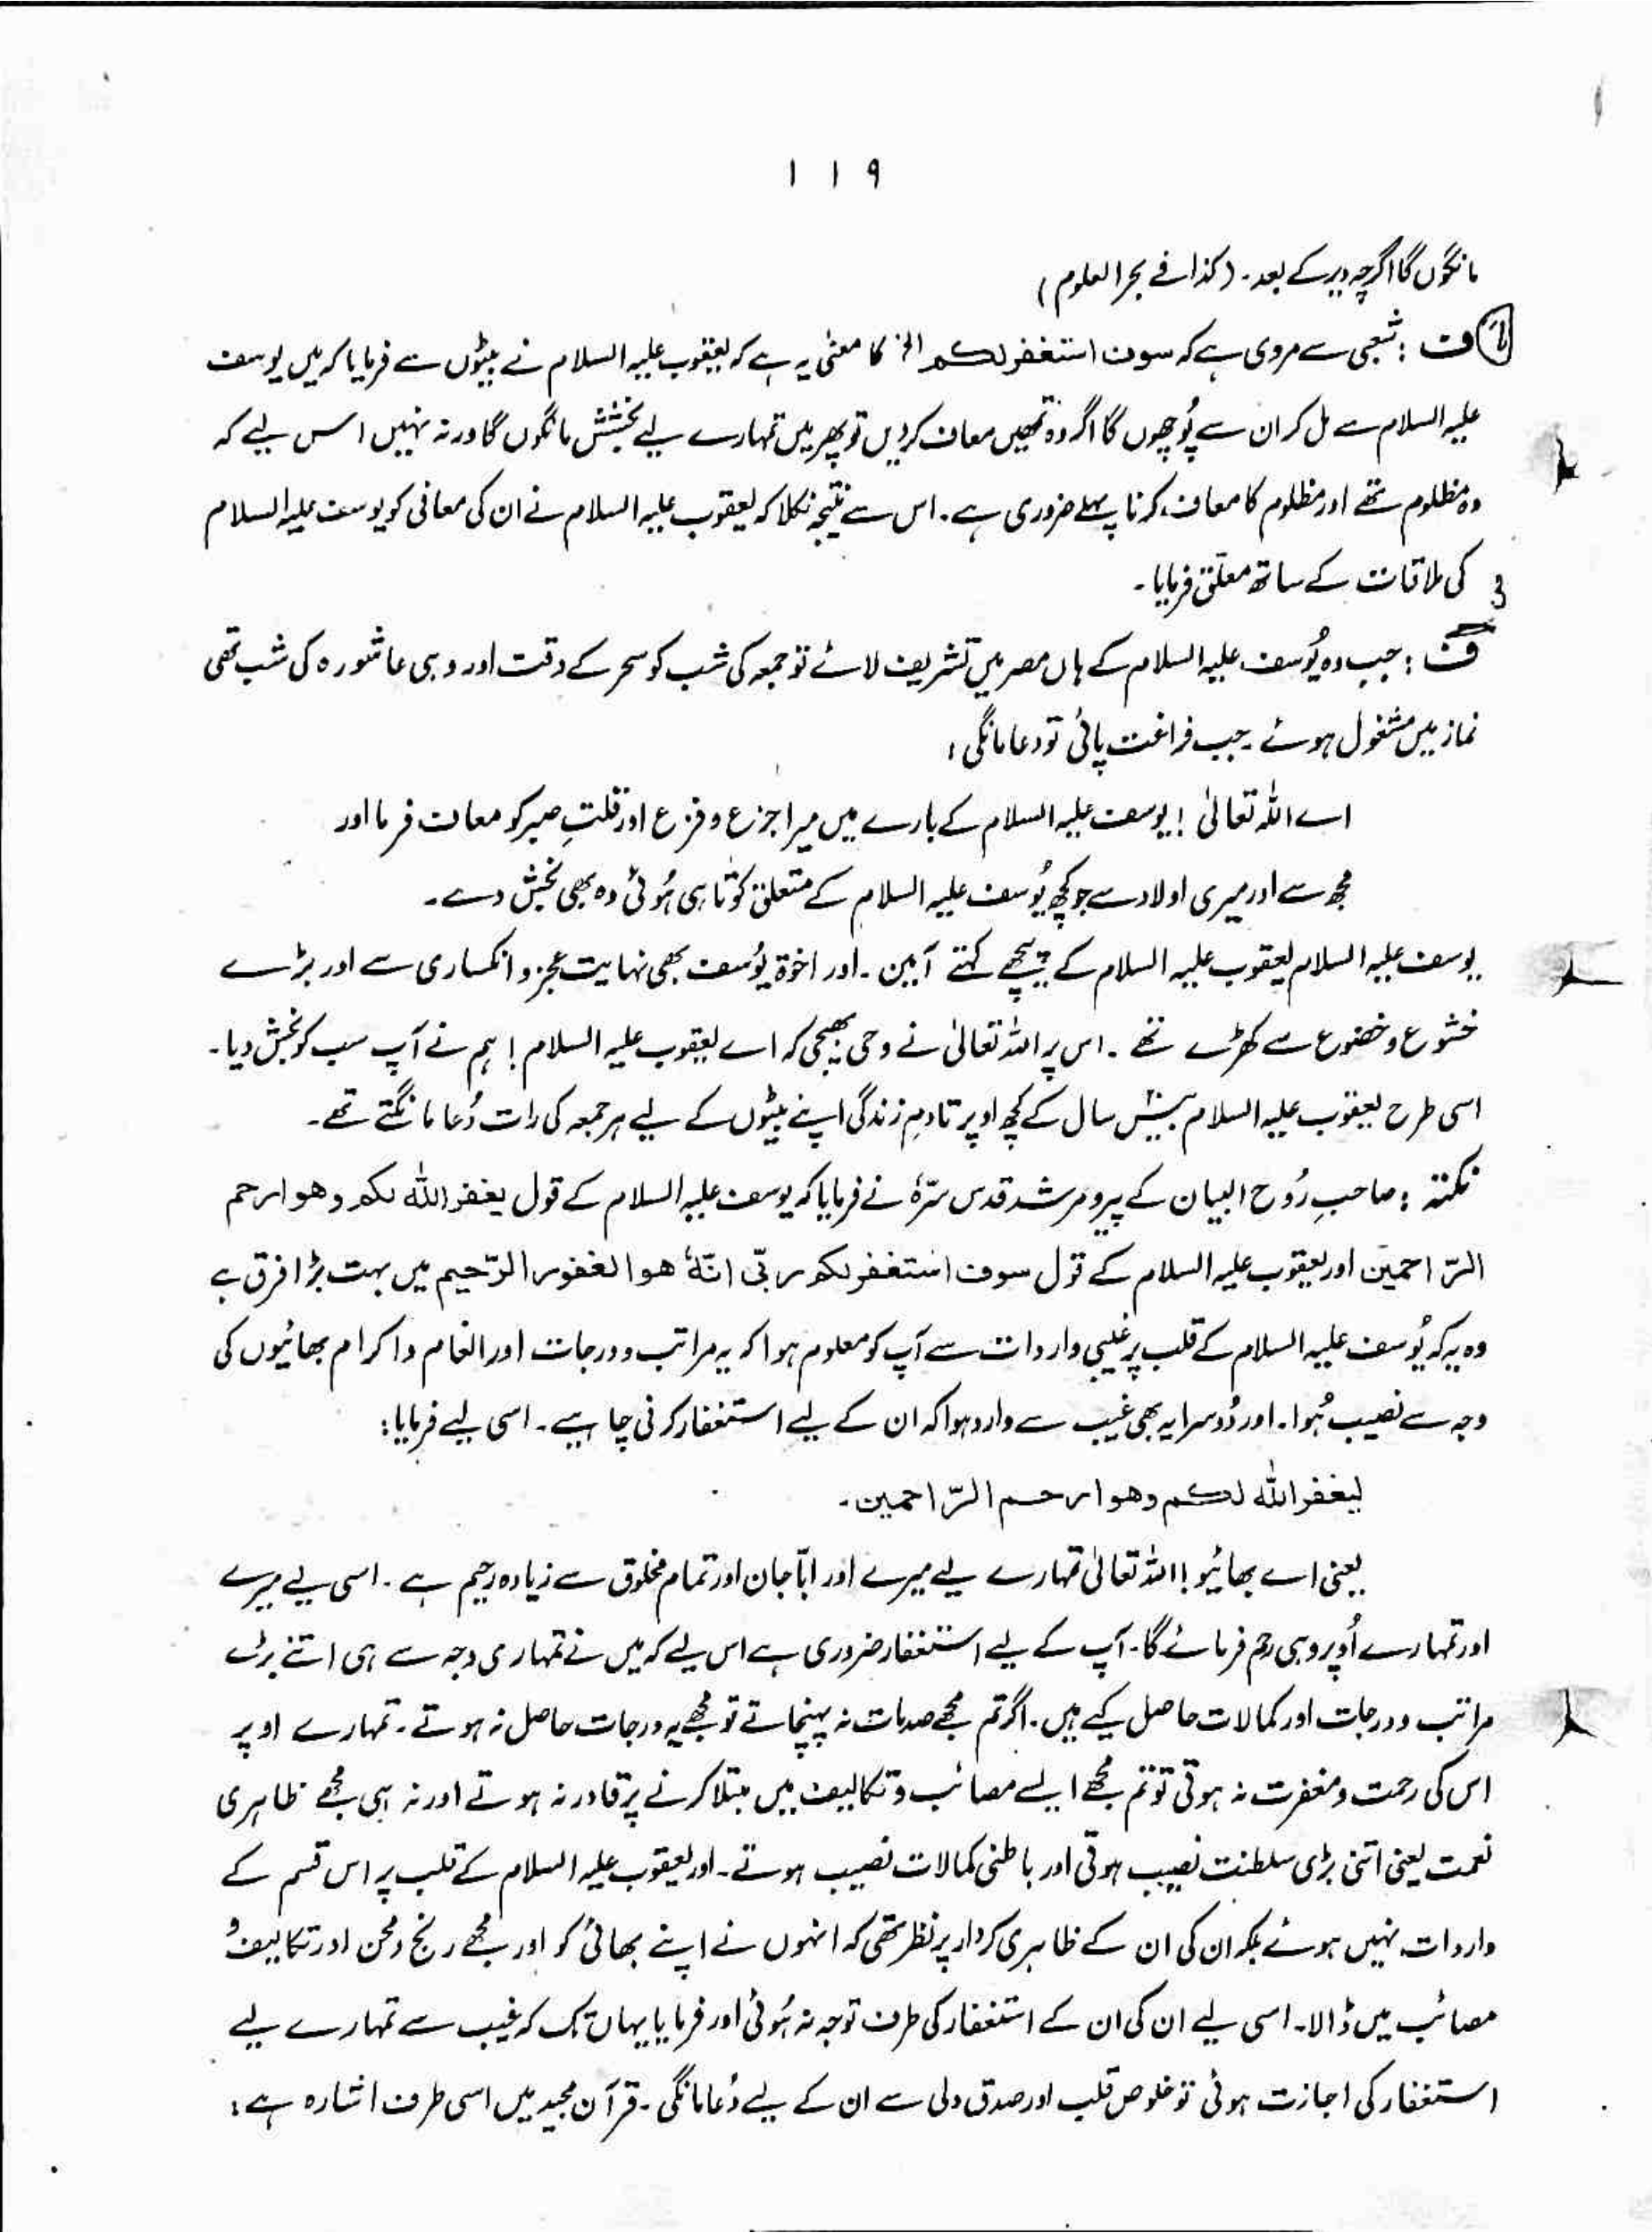 ۱۱۹
مانگوں گا اگرچہ دیر کے بعد۔ (کذا فے بحر العلوم)
ف : شعبی سے مروی ہے کہ سوف استغفر لکم الخ کا معنٰی یہ ہے کہ یعقوب علیہ السلام نے بیٹوں سے فرمایا کہ میں یوسف
علیہ السلام سے مل کر ان سے پُوچھوں گا اگر وہ تمھیں معاف کردیں تو پھر میں تمہارے لیے بخشش مانگوں گا ورنہ نہیں اس لیے کہ
وہ مظلوم تھے اور مظلوم کا معاف کرنا پہلے ضروری ہے۔ اس سے نتیجہ نکلا کہ یعقوب علیہ السلام نے ان کی معافی کو یوسف علیہ السلام
کی ملاقات کے ساتھ معلّق فرمایا۔
ف : جب وہ یُوسف علیہ السلام کے ہاں مصر میں تشریف لائے تو جمعہ کی شب کو سحر کے وقت اور وہی عاشورہ کی شب تھی
نماز میں مشغول ہوئے جب فراغت پائی تو دعا مانگی :
اے اللہ تعالیٰ ! یوسف علیہ السلام کے بارے میں میرا جزع و فزع اور قلتِ صبر کو معاف فرما اور
مجھ سے اور میری اولاد سے جو کچھ یُوسف علیہ السلام کے متعلق کوتاہی ہُوئی وہ بھی بخش دے۔
یوسف علیہ السلام یعقوب علیہ السلام کے پیچھے کہتے آمین ۔ اور اخوۃ یُوسف بھی نہایت عجز و انکساری سے اور بڑے
خشوع و خضوع سے کھڑے تھے ۔ اس پر اللہ تعالیٰ نے وحی بھیجی کہ اے یعقوب علیہ السلام ! ہم نے آپ سب کو بخش دیا۔
اسی طرح یعقوب علیہ السلام بیس سال کے کچھ اوپر تا دمِ زندگی اپنے بیٹوں کے لیے ہر جمعہ کی رات دُعا مانگتے تھے۔
نکتہ : صاحبِ رُوح البیان کے پیر و مرشد قدس سّرہٗ نے فرمایا کہ یوسف علیہ السلام کے قول یغفر اللہ لکم وھو ارحم
الرّاحمین اور یعقوب علیہ السلام کے قول سوف استغفر لکم ربّی انّہٗ ھو الغفور الرّحیم میں بہت بڑا فرق ہے
وہ یہ کہ یُوسف علیہ السلام کے قلب پر غیبی واردات سے آپ کو معلوم ہوا کہ یہ مراتب و درجات اور انعام و اکرام بھائیوں کی
وجہ سے نصیب ہُوا۔ اور دُوسرا یہ بھی غیب سے وارد ہوا کہ ان کے لیے استغفار کرنی چاہیے۔ اسی لیے فرمایا :
لیغفر اللہ لکم وھو ارحم الرّاحمین۔
یعنی اے بھائیو ! اللہ تعالیٰ تمہارے لیے میرے اور ابّا جان اور تمام مخلوق سے زیادہ رحیم ہے ۔ اسی لیے میرے
اور تمہارے اُوپر وہی رحم فرمائے گا۔ آپ کے لیے استغفار ضروری ہے اس لیے کہ میں نے تمہاری وجہ سے ہی اتنے بڑے
مراتب و درجات اور کمالات حاصل کیے ہیں۔ اگر تم مجھے صدمات نہ پہنچاتے تو مجھے یہ درجات حاصل نہ ہوتے۔ تمہارے اوپر
اس کی رحمت و مغفرت نہ ہوتی تو تم مجھے ایسے مصائب و تکالیف میں مبتلا کرنے پر قادر نہ ہوتے اور نہ ہی مجھے ظاہری
نعمت یعنی اتنی بڑی سلطنت نصیب ہوتی اور باطنی کمالات نصیب ہوتے۔ اور یعقوب علیہ السلام کے قلب پر اس قسم کے
واردات نہیں ہوئے بلکہ ان کی ان کے ظاہری کردار پر نظر تھی کہ انہوں نے اپنے بھائی کو اور مجھے رنج و محن اور تکالیف و
مصائب میں ڈالا۔ اسی لیے ان کی ان کے استغفار کی طرف توجہ نہ ہُوئی اور فرمایا یہاں تک کہ غیب سے تمہارے لیے
استغفار کی اجازت ہوئی تو خلوص قلب اور صدق دلی سے ان کے لیے دُعا مانگی ۔ قرآن مجید میں اسی طرف اشارہ ہے :